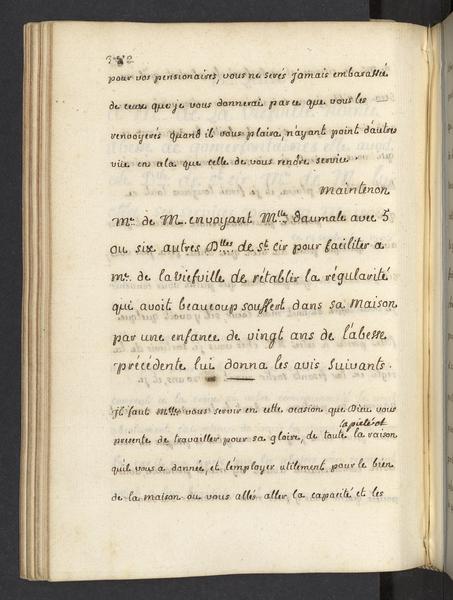 pour vos pensionaires, vous ne serés jamais embarassée
de ceux que je vous donnerai parce que vous les
renvoyerés quand il vous plaira, n'ayant point d'autres
vüe en cela que celle de vous rendre service
Maintenon
Me. de M. envoyant Mlle d'aumale avec 5
ou six autres Dlles de St. cir pour faciliter a
me. de la viefville de rétablir la régularité
qui avoit beaucoup souffert dans sa maison
par une enfance de vingt ans de l'abesse
précédente lui donna les avis suivants.
il faut Mlles vous servir en cette ocasion que Dieu vous
la pieté et
presente de travailler pour sa gloire, de toute la raison
qu'il vous a donnée, et l'employer utilement pour le bien
de la maison ou vous allés aller la capacité et les